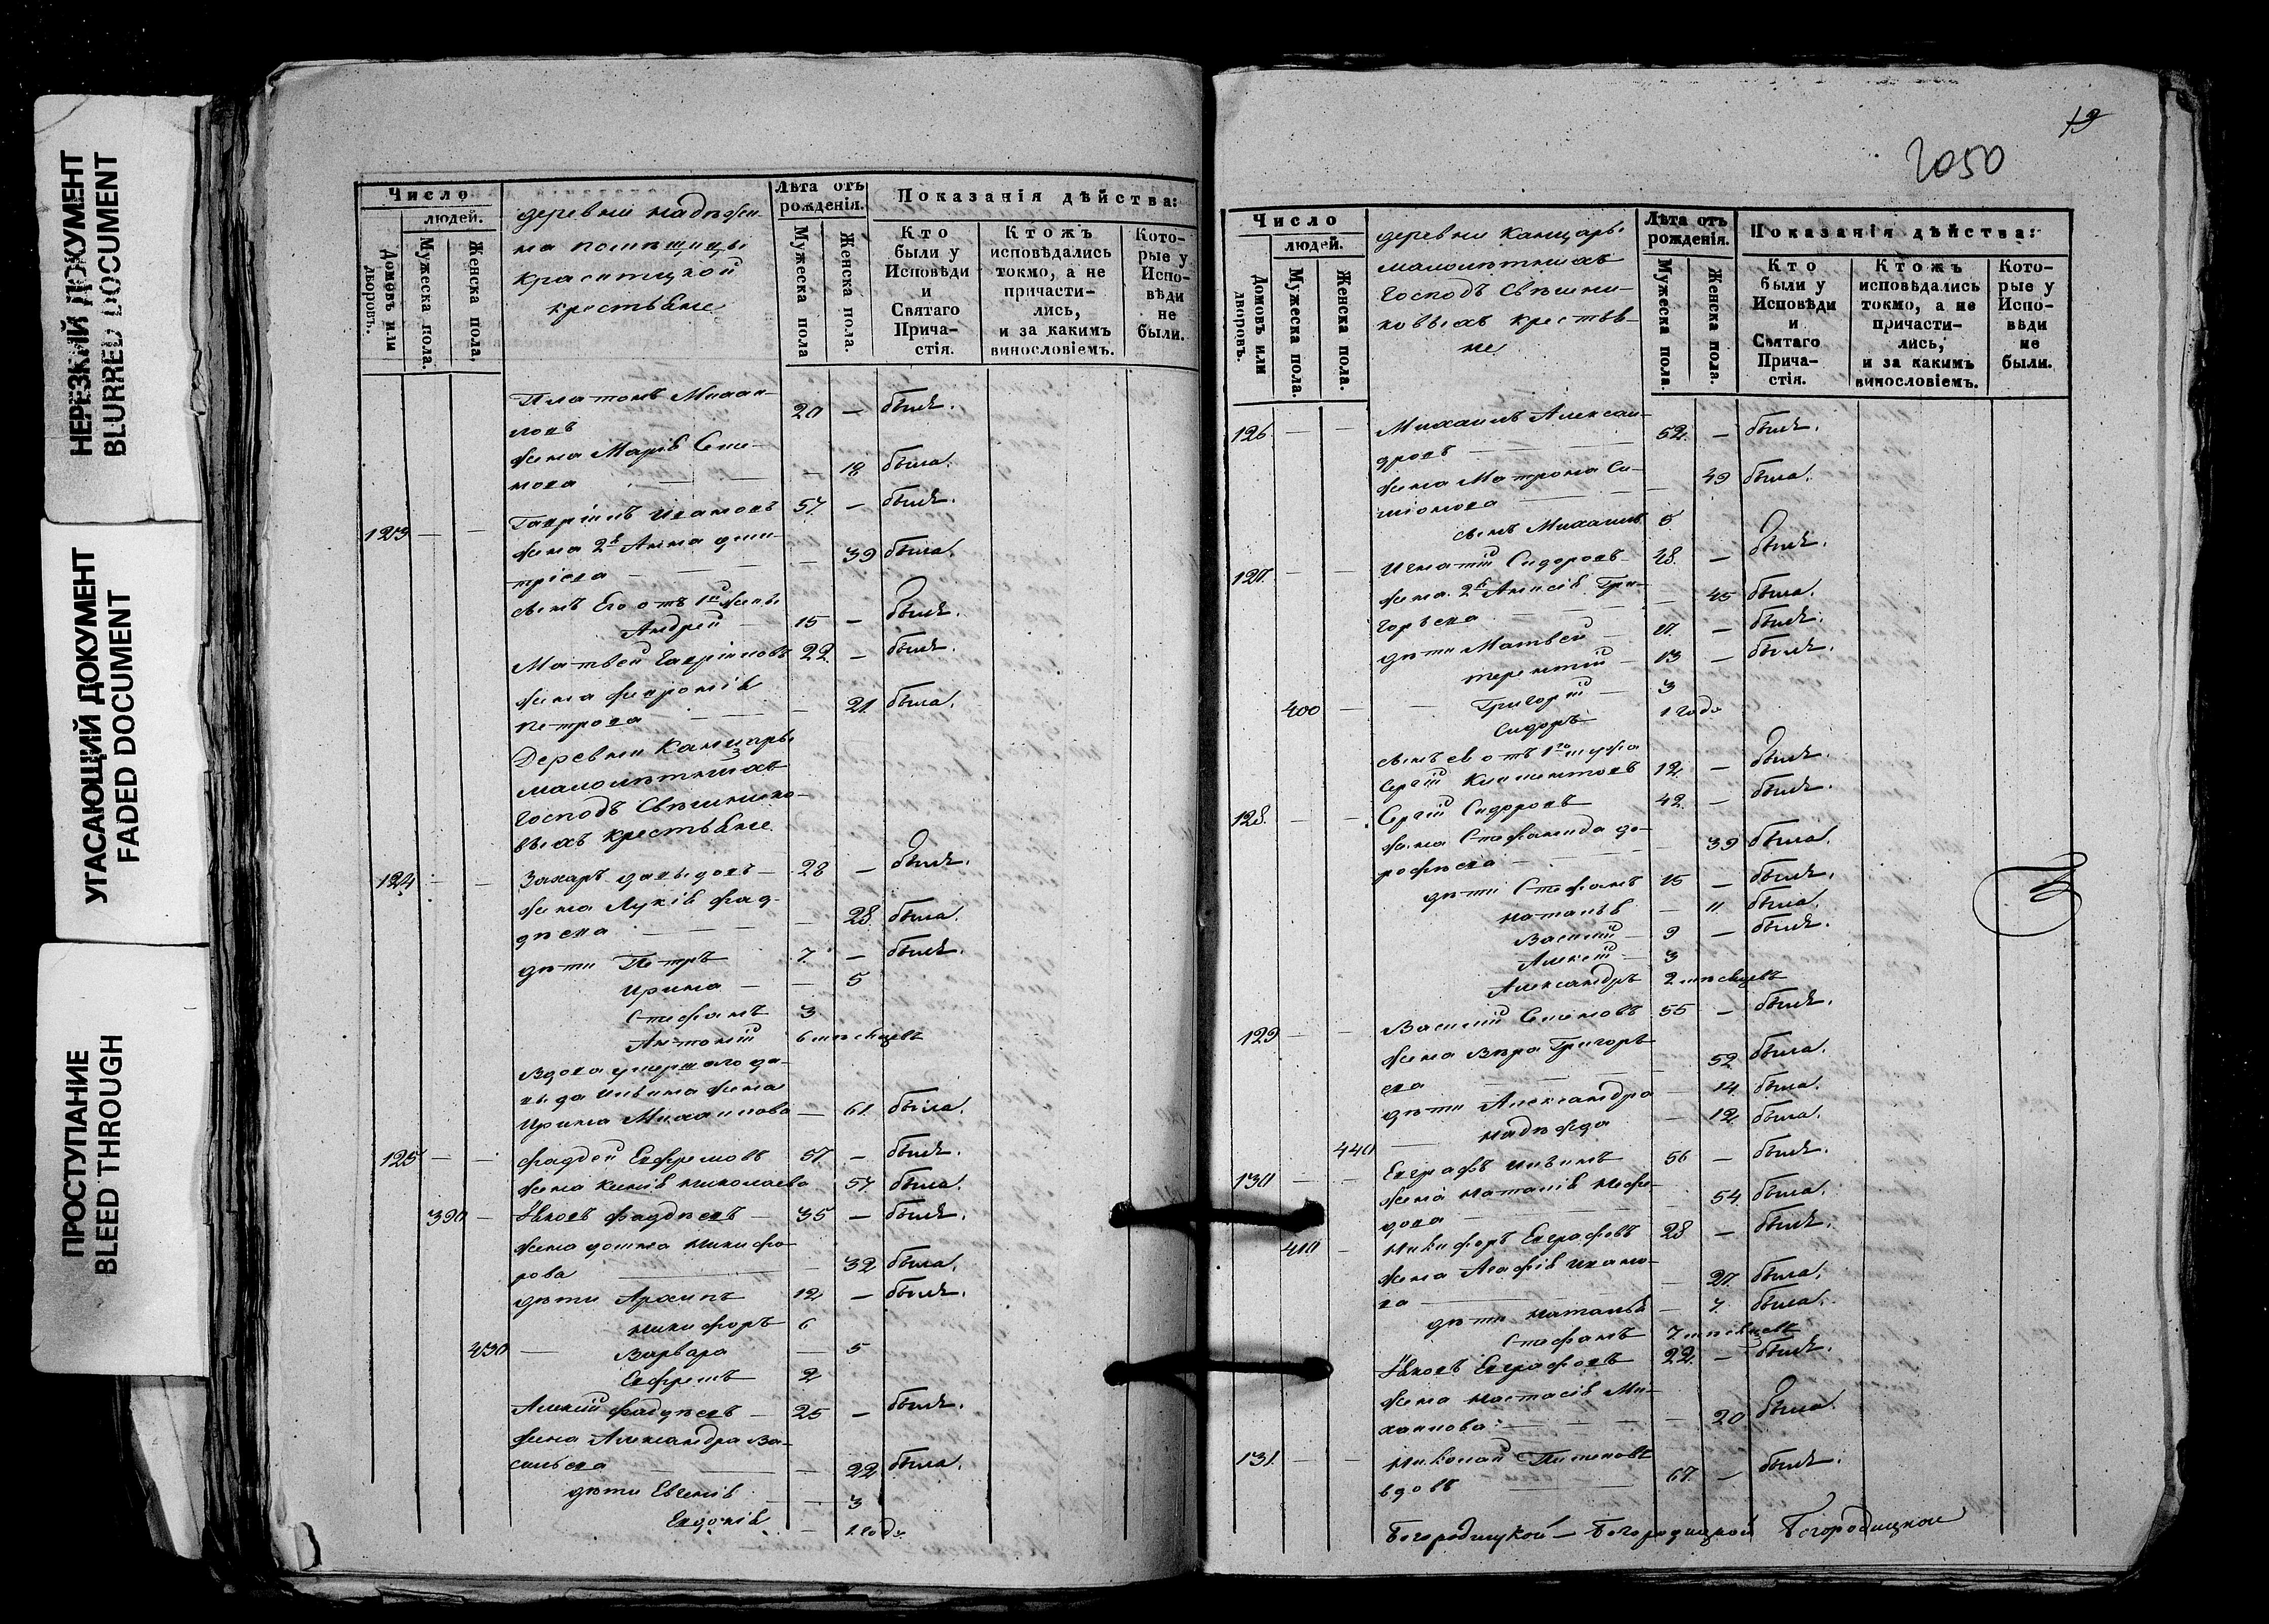 НЕРЕЗКИЙ ДОКУМЕНТ
BLURRED DOCUMENT
УГАСАЮЩИЙ ДОКУМЕНТ
FADED DOCUMENT
ПРОСТУПАНИЕ
BLEED THROUGH
Число
людей.
Домовъ или дворовъ.
Мужеска пола.
Женска пола.
деревни надѣжи-
на помѣщицы
крестьяне
Лѣта отъ рожденія.
Мужеска пола
Женска пола.
Показанія дѣйства:
Кто были у Исповѣди и Святаго Прича- стія.
Ктожъ исповѣдались токмо, а не причасти- лись, и за какимъ винословіемъ.
Кото- рые у Испо- вѣди не были.
Платонъ Михаи-
ловъ 20 — былъ.
жена Марія Семе-
нова — 18 была.
123 — — Гавріилъ Ивановъ 57 — былъ.
жена 2я Анна дми-
тріева — 39 была.
сынъ Его отъ 1й жены
Андрей — 15 — былъ.
Матвей Гавріиловъ 22 — былъ.
жена Феvронія
Петрова — 21 была.
Деревни Канцары
малолѣтныхъ
Господъ Свѣшнико-
выхъ крестьяне
124 — — Захаръ давыдовъ — 28 — былъ.
жена Лукія фад-
дѣева — 28 была.
дѣти Петръ 7 — былъ.
Ирина — — 5
Стефанъ 3
Антоній 6 мѣсяцевъ
Вдова умершаго да-
выда Ильина жена
Ирина Михаилова — 61 была.
125 — — фаддей Ефремовъ 57 — былъ.
жена Ксенія Николаева 57 была.
390 — Яковъ фаддѣевъ — 35 — былъ.
жена домна Никифо-
рова — 32 была.
дѣти Архипъ 12 — былъ.
Никифоръ 6
430 — Варвара — 5
Ефремъ 2
Алексій фаддѣевъ — 25 — былъ.
жена Александра Ва-
сильева — 22 была.
дѣти Евгенія — — 3
Евдокія — 1 годъ
19
1050
Число
людей.
Домовъ или дворовъ.
Мужеска пола.
Женска пола.
деревни Канцары
малолѣтныхъ
Господъ Свѣшни-
ковыхъ крестья-
не
Лѣта отъ рожденія.
Мужеска пола.
Женска пола.
Показанія дѣйства:
Кто были у Исповѣди и Святаго Прича- стія.
Ктожъ исповѣдались токмо, а не причасти- лись, и за какимъ винословіемъ.
Кото- рые у Испо- вѣди не были.
126 — — Михаилъ Алексан-
дровъ — 52 — былъ.
жена Матрона Си-
міонова — 49 была.
сынъ Михаилъ 5
127 — — Игнатій Сидоровъ 48 — былъ.
жена 2я Анисія Гри-
горьева — 45 была.
дѣти Матвей — 17 — былъ.
терентій — 13 — былъ.
400 — — Григорій — 3
Сидоръ 1 годъ
сынъ ея отъ 1го мужа
Сергій Климентовъ 12 — былъ.
128 — — Сергій Сидоровъ 42 — былъ.
жена Стефанида до-
рофѣева — 39 была.
дѣти Стефанъ 15 — былъ.
наталья — 11 была.
Василій 9 — былъ.
Алексій 3
Александръ 2 мѣсяцевъ
129 — — Василій Семеновъ 55 — былъ.
жена Вѣра Григорь-
ева — 52 была.
дѣти Александра — 14 была.
440 — надѣжда — 12 была.
130 — — Евграфъ Ильинъ 56 — былъ.
жена Наталія Нефе-
дова — 54 была.
410 — Никифоръ Евграфовъ 28 — былъ.
жена Агафія Ивано-
ва — 27 была.
дѣти Наталья — 7 была.
Стефанъ 7 мѣсяцевъ
Яковъ Евграфовъ 22 — былъ.
жена Настасія Ми-
хаилова — 20 была.
131 — — Николай Пименовъ
вдовъ 67 — былъ.
Богородицкой — Богородицкой Богородицкой